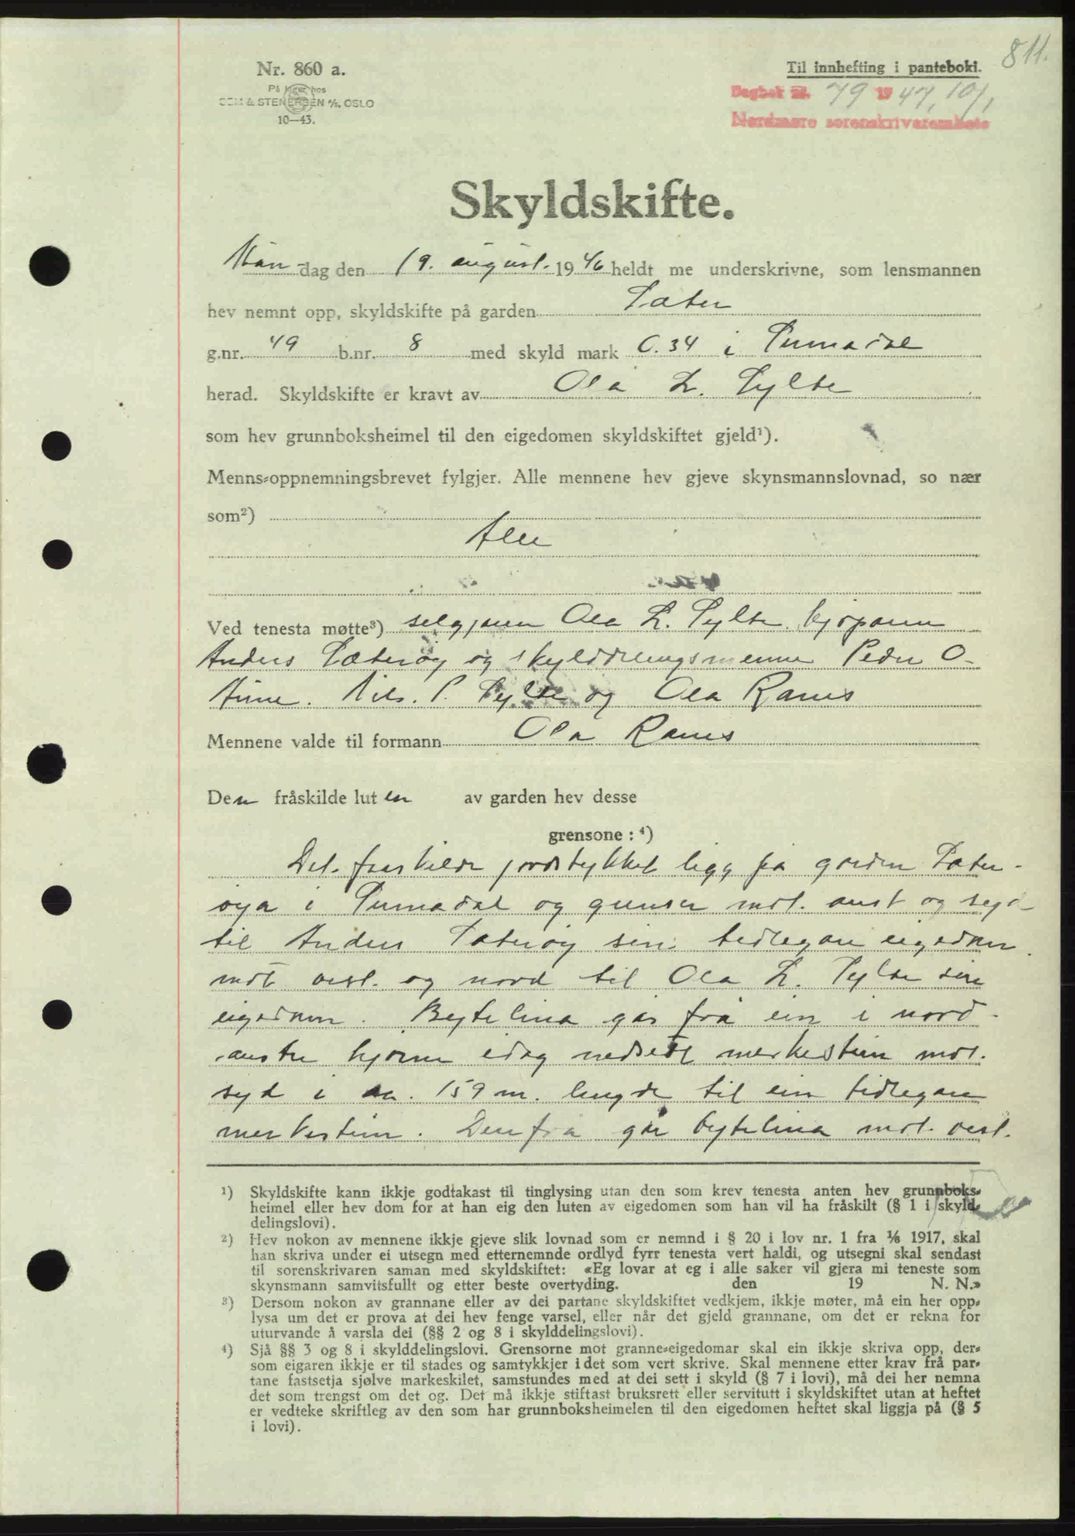 811.
Nr. 860 a.
Til innhefting i pantebok.
På lager hos
SEM & STENERSEN A/S. OSLO
10-43.
Dagbok nr. 79 1947, 10/1
Nordmøre sorenskrivarembete
Skyldskifte.
Mån-dag den 19. august. 1946 heldt me underskrivne, som lensmannen
hev nemnt opp, skyldskifte på garden Sæter
g.nr. 49 b.nr. 8 med skyld mark 0.34 i Surnadal
herad. Skyldskifte er kravt av Ola L. Sylte
som hev grunnboksheimel til den eigedomen skyldskiftet gjeld¹).
Menns-oppnemningsbrevet fylgjer. Alle mennene hev gjeve skynsmannslovnad, so nær
som²)
Alle
Ved tenesta møtte³) seljaren Ola L. Sylte. kjøparen
Anders Sæterøy og skylddelingsmenne Peder O.
Nils. P. Sylte og Ola Ranes
Mennene valde til formann Ola Ranes
Den fråskilde luten av garden hev desse
grensone : ⁴)
Det fraskilde jordstykket ligg på garden Sæter-
øya i Surnadal og grenser mot. aust og syd
til Anders Sæterøy sin tidlegare eigedom.
mot vest. og nord til Ola L. Sylte sin
eigedom. Bytelina går frå ein i nord-
austre hjørne idag nedsett merkestein mot.
syd i ca. 159 m. lengde til ein tidlegare
merkestein. Derfra går bytelina mot. vest.
¹) Skyldskifte kann ikkje godtakast til tinglysing utan den som krev tenesta anten hev grunnboks-
heimel eller hev dom for at han eig den luten av eigedomen som han vil ha fråskilt (§ 1 i skyld-
delingslovi).
²) Hev nokon av mennene ikkje gjeve slik lovnad som er nemnd i § 20 i lov nr. 1 fra 1/6 1917, skal
han skriva under ei utsegn med etternemnde ordlyd fyrr tenesta vert haldi, og utsegni skal sendast
til sorenskrivaren saman med skyldskiftet: «Eg lovar at eg i alle saker vil gjera mi teneste som
skynsmann samvitsfullt og etter beste overtyding. den 19 N. N.»
³) Dersom nokon av grannane eller av dei partane skyldskiftet vedkjem, ikkje møter, må ein her opp-
lysa um det er prova at dei hev fenge varsel, eller når det gjeld grannane, om det er rekna for
uturvande å varsla dei (§§ 2 og 8 i skylddelingslovi).
⁴) Sjå §§ 3 og 8 i skylddelingslovi. Grensorne mot granne-eigedomar skal ein ikkje skriva opp, der-
som eigaren ikkje er til stades og samtykkjer i det som vert skrive. Skal mennene etter krav frå par-
tane fastsetja sjølve markeskilet, samstundes med at dei sett i skyld (§ 7 i lovi), må dei her nemna
det som trengst om det og. Det må ikkje stiftast bruksrett eller servitutt i skyldskiftet utan at heftet
er vedteke skriftleg av den som har grunnboksheimelen til den eigedomen heftet skal liggja på (§ 5
i lovi).